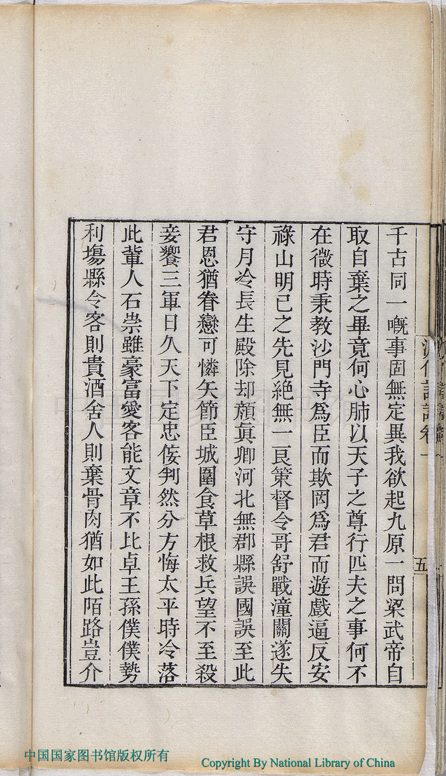 千古同一嘅事固無定異我欲起九原一問梁武帝自
取自棄之畢竟何心肺以天子之尊行匹夫之事何不
在微時秉教沙門寺爲臣而欺罔爲君而遊戲逼反安
祿山明已之先見絶無一良策督令哥舒戰潼關遂失
守月冷長生殿除却顏眞卿河北無郡縣誤國誤至此
君恩猶眷戀可憐矢節臣城圍食草根救兵望不至殺
妾饗三軍日久天下定忠佞判然分方悔太平時冷落
此輩人石崇雖豪富愛客能文章不比卓王孫僕僕勢
利塲縣令客則貴酒舍人則棄骨肉猶如此陌路豈介
五
中国国家图书馆版权所有
Copyright By National Library of China